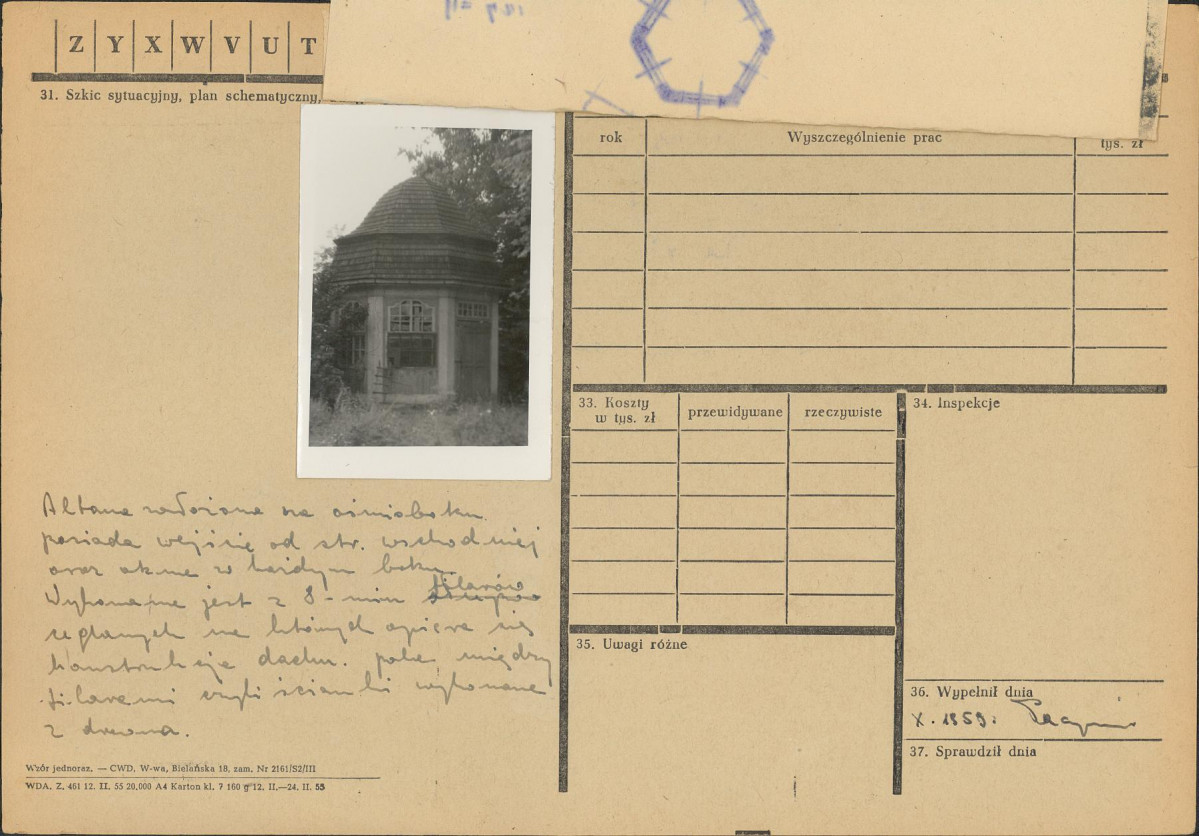 Z Y X W V U T
31. Szkic sytuacyjny, plan schematyczny,
rok Wyszczególnienie prac tys. zł
33. Koszty w tys. zł przewidywane rzeczywiste
34. Inspekcje
Altana założona na ośmioboku
posiada wejście od str. wschodniej
oraz okna w każdym boku.
Wykonane jest z 8-miu słupów filarów
ceglanych na których opiera się
konstrukcja dachu. pola między
filarami czyli ścianki wykonane
z drewna.
35. Uwagi różne
36. Wypełnił dnia
X. 1959.
37. Sprawdził dnia
Wzór jednoraz. — CWD. W-wa, Bielańska 18, zam. Nr 2161/S2/III
WDA. Z. 461 12. II. 55 20.000 A4 Karton kl. 7 160 g 12. II.—24. II. 55